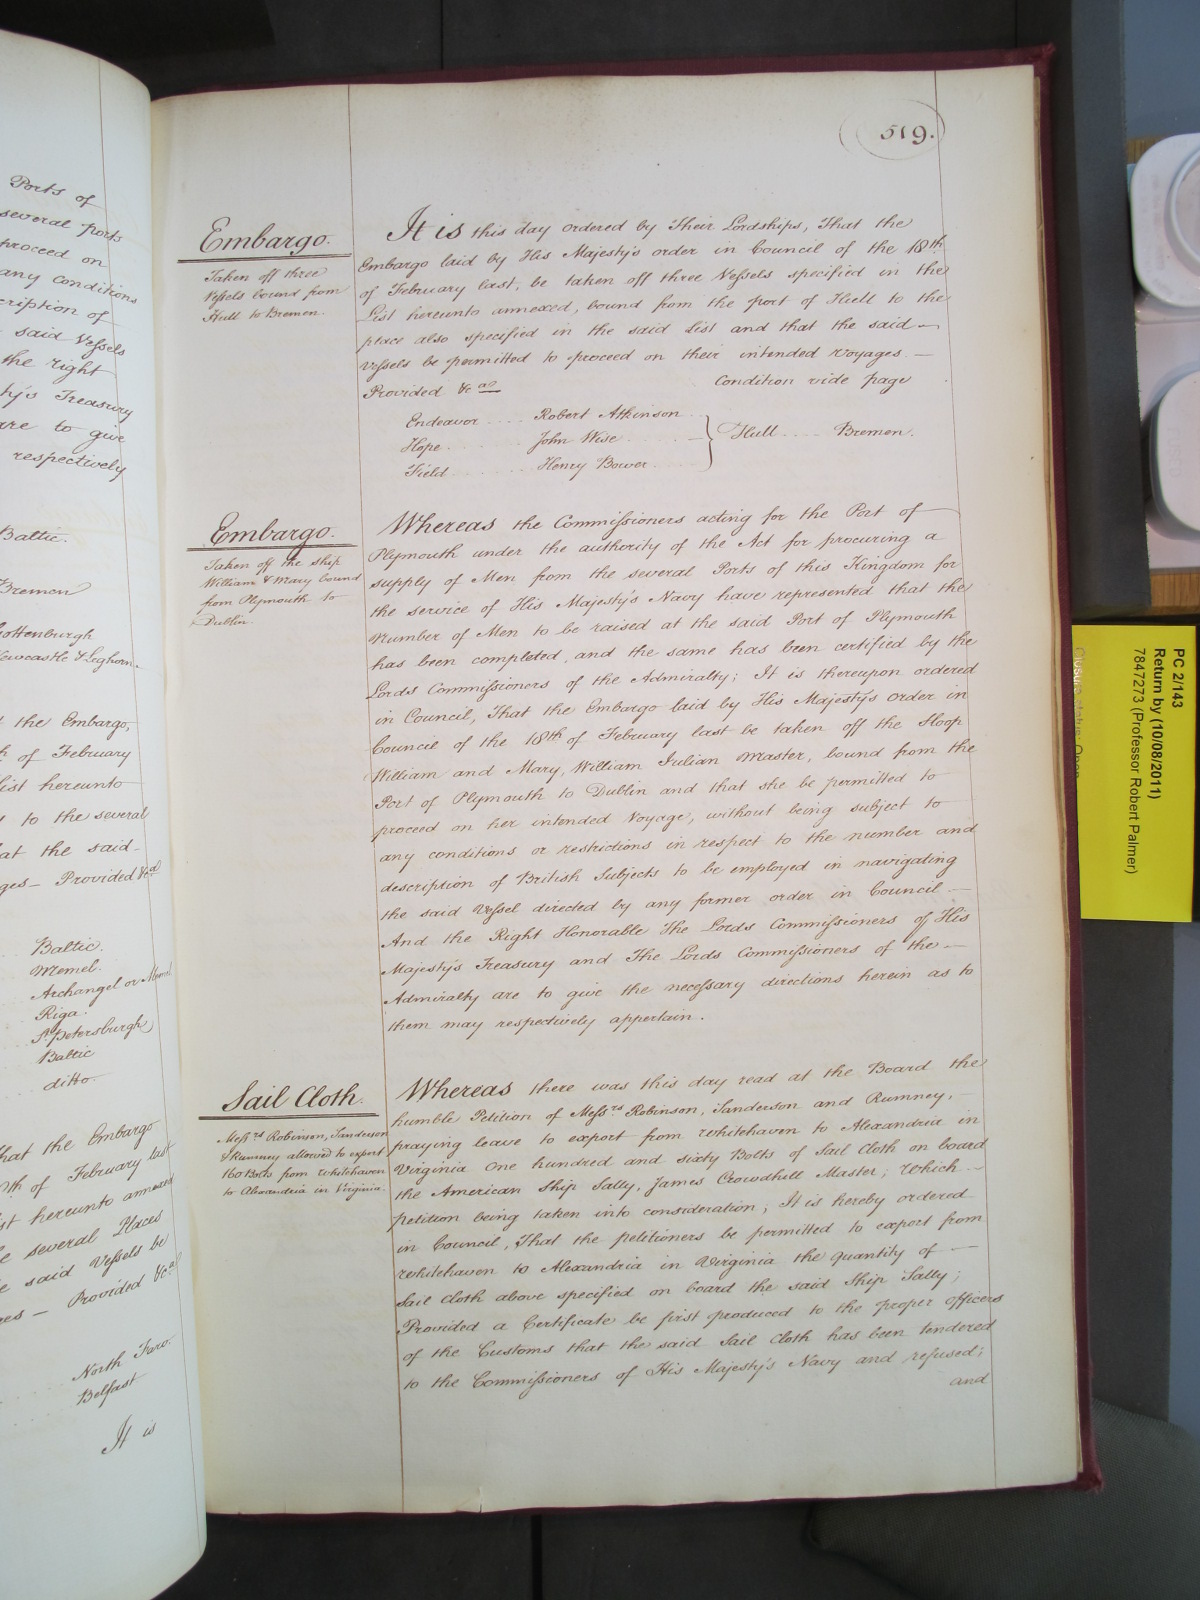 Ports of
several ports
proceed on
any conditions
cription of
said Vessels
the right
ty's Treasury
are to give
respectively
Baltic.
Bremen
Gottenburgh
Newcastle & Leghorn
the Embargo,
of February
List hereunto
to the several
at the said
ges - Provided &ca
Baltic.
Memel.
Archangel or Memel
Riga.
St. Petersburgh
Baltic
ditto
hat the Embargo
th of February last
st hereunto annexed
e several Places
e said Vessels be
es - Provided &ca
North Faro.
Belfast
It is
519.
Embargo.
Taken off three
Vessels bound from
Hull to Bremen.
It is this day ordered by Their Lordships, That the
Embargo laid by His Majesty's order in Council of the 18th
of February last, be taken off three Vessels specified in the
List hereunto annexed, bound from the port of Hull to the
place also specified in the said List and that the said -
Vessels be permitted to proceed on their intended Voyages. -
Provided &ca Condition vide page
Endeavor .... Robert Atkinson ..
Hope ........ John Wise ...... } Hull .... Bremen.
Field ....... Henry Bower ....
Embargo.
Taken off the ship
William & Mary bound
from Plymouth to
Dublin.
Whereas the Commissioners acting for the Port of
Plymouth under the authority of the Act for procuring a
supply of Men from the several Ports of this Kingdom for
the service of His Majesty's Navy have represented that the
Number of Men to be raised at the said Port of Plymouth
has been completed, and the same has been certified by the
Lords Commissioners of the Admiralty; It is thereupon ordered
in Council, That the Embargo laid by His Majesty's order in
Council of the 18th of February last be taken off the Sloop
William and Mary, William Julian Master, bound from the
Port of Plymouth to Dublin and that she be permitted to
proceed on her intended Voyage, without being subject to
any conditions or restrictions in respect to the number and
description of British Subjects to be employed in navigating
the said Vessel directed by any former order in Council -
And the Right Honorable The Lords Commissioners of His
Majesty's Treasury and The Lords Commissioners of the -
Admiralty are to give the necessary directions herein as to
them may respectively appertain.
Sail Cloth.
Messrs Robinson, Sanderson
& Rumney allowed to export
160 Bolts from Whitehaven
to Alexandria in Virginia.
Whereas there was this day read at the Board the
humble Petition of Messrs Robinson, Sanderson and Rumney, -
praying leave to export from Whitehaven to Alexandria in
Virginia One hundred and sixty Bolts of Sail Cloth on board
the American Ship Sally, James Crowdhill Master; Which -
petition being taken into consideration; It is hereby ordered
in Council, That the petitioners be permitted to export from
Whitehaven to Alexandria in Virginia the quantity of -
Sail Cloth above specified on board the said Ship Sally;
Provided a Certificate be first produced to the proper officers
of the Customs that the said Sail Cloth has been tendered
to the Commissioners of His Majesty's Navy and refused;
and
PC 2/143
Return by (10/08/2011)
7847273 (Professor Robert Palmer)
Closure status: Open